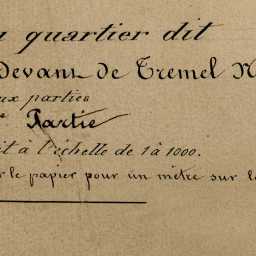 u quartier dit
Devant de Tremel N
ux parties
e Partie
it à l'échelle de 1 à 1000.
r le papier pour un mètre sur le